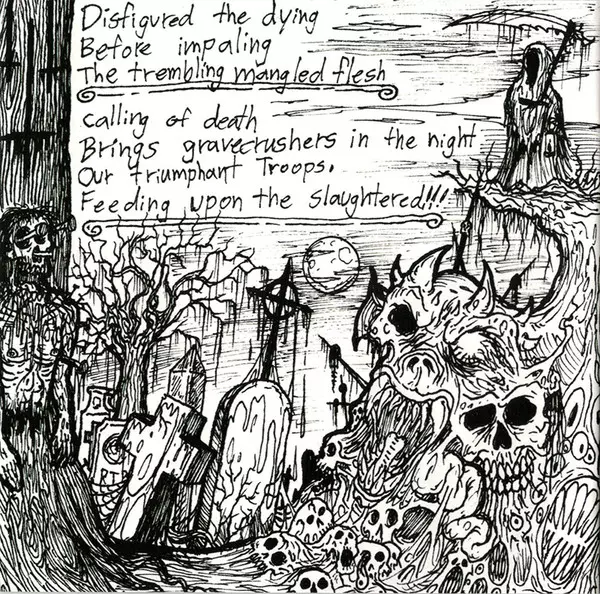 Disfigured the dying
Before impaling
The trembling mangled flesh
calling of death
Brings gravecrushers in the night
Our triumphant Troops.
Feeding upon the slaughtered!!!
R.I